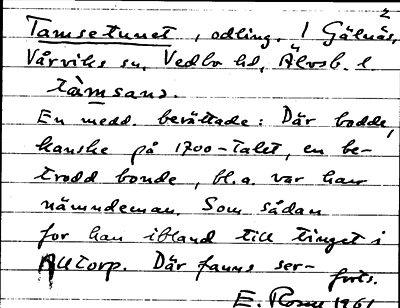 2
Tamsetunet, odling. I Gälnäs,
Vårviks sn, Vedbo hd, Älvsb. l.
tàmsans.
En medd. berättade: Där bodde,
kanske på 1700-talet, en be-
trodd bonde, bl.a. var han
nämndeman. Som sådan
for han ibland till tinget i
Altorp. Där fanns ser-
forts.
E. Rosm 1961